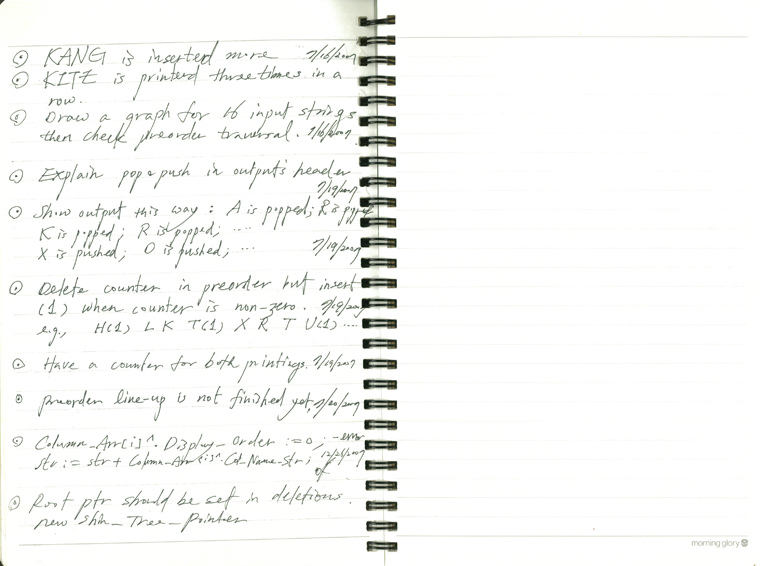 KANG is inserted more 7/16/2007
KITE is printerd three times in a
row.
Draw a graph for 16 input strings
then check preorder traversal. 7/16/2007
Explain pop & push in output's header
7/19/2007
Show output this way : A is popped; R is popped
K is popped; R is popped; ....
X is pushed; O is pushed; ... 7/19/2007
Delete counter in preorder but insert
(1) when counter is non-zero. 7/19/2007
e.g., H(1) L K T(1) X R T U(1) ....
Have a counter for both printings. 7/19/2007
preorder line-up is not finished yet, 7/20/2007
Column_Arr[i]^. Display_Order := 0; -error
str := str + Column_Arr[i]^. Col_Name_Str; 12/21/2007
of
Root ptr should be set in deletions.
new Tree_Pointer
morning glory